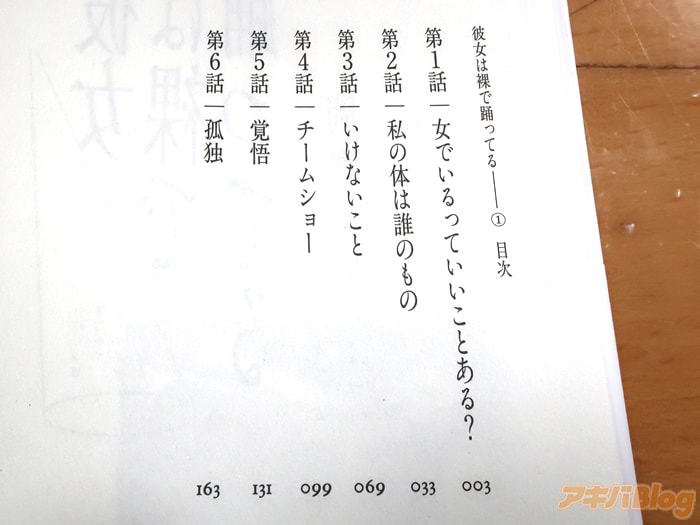 彼女は裸で踊ってる――① 目次
第1話｜女でいるっていいことある？ 003
第2話｜私の体は誰のもの 033
第3話｜いけないこと 069
第4話｜チームショー 099
第5話｜覚悟 131
第6話｜孤独 163
アキバBlog